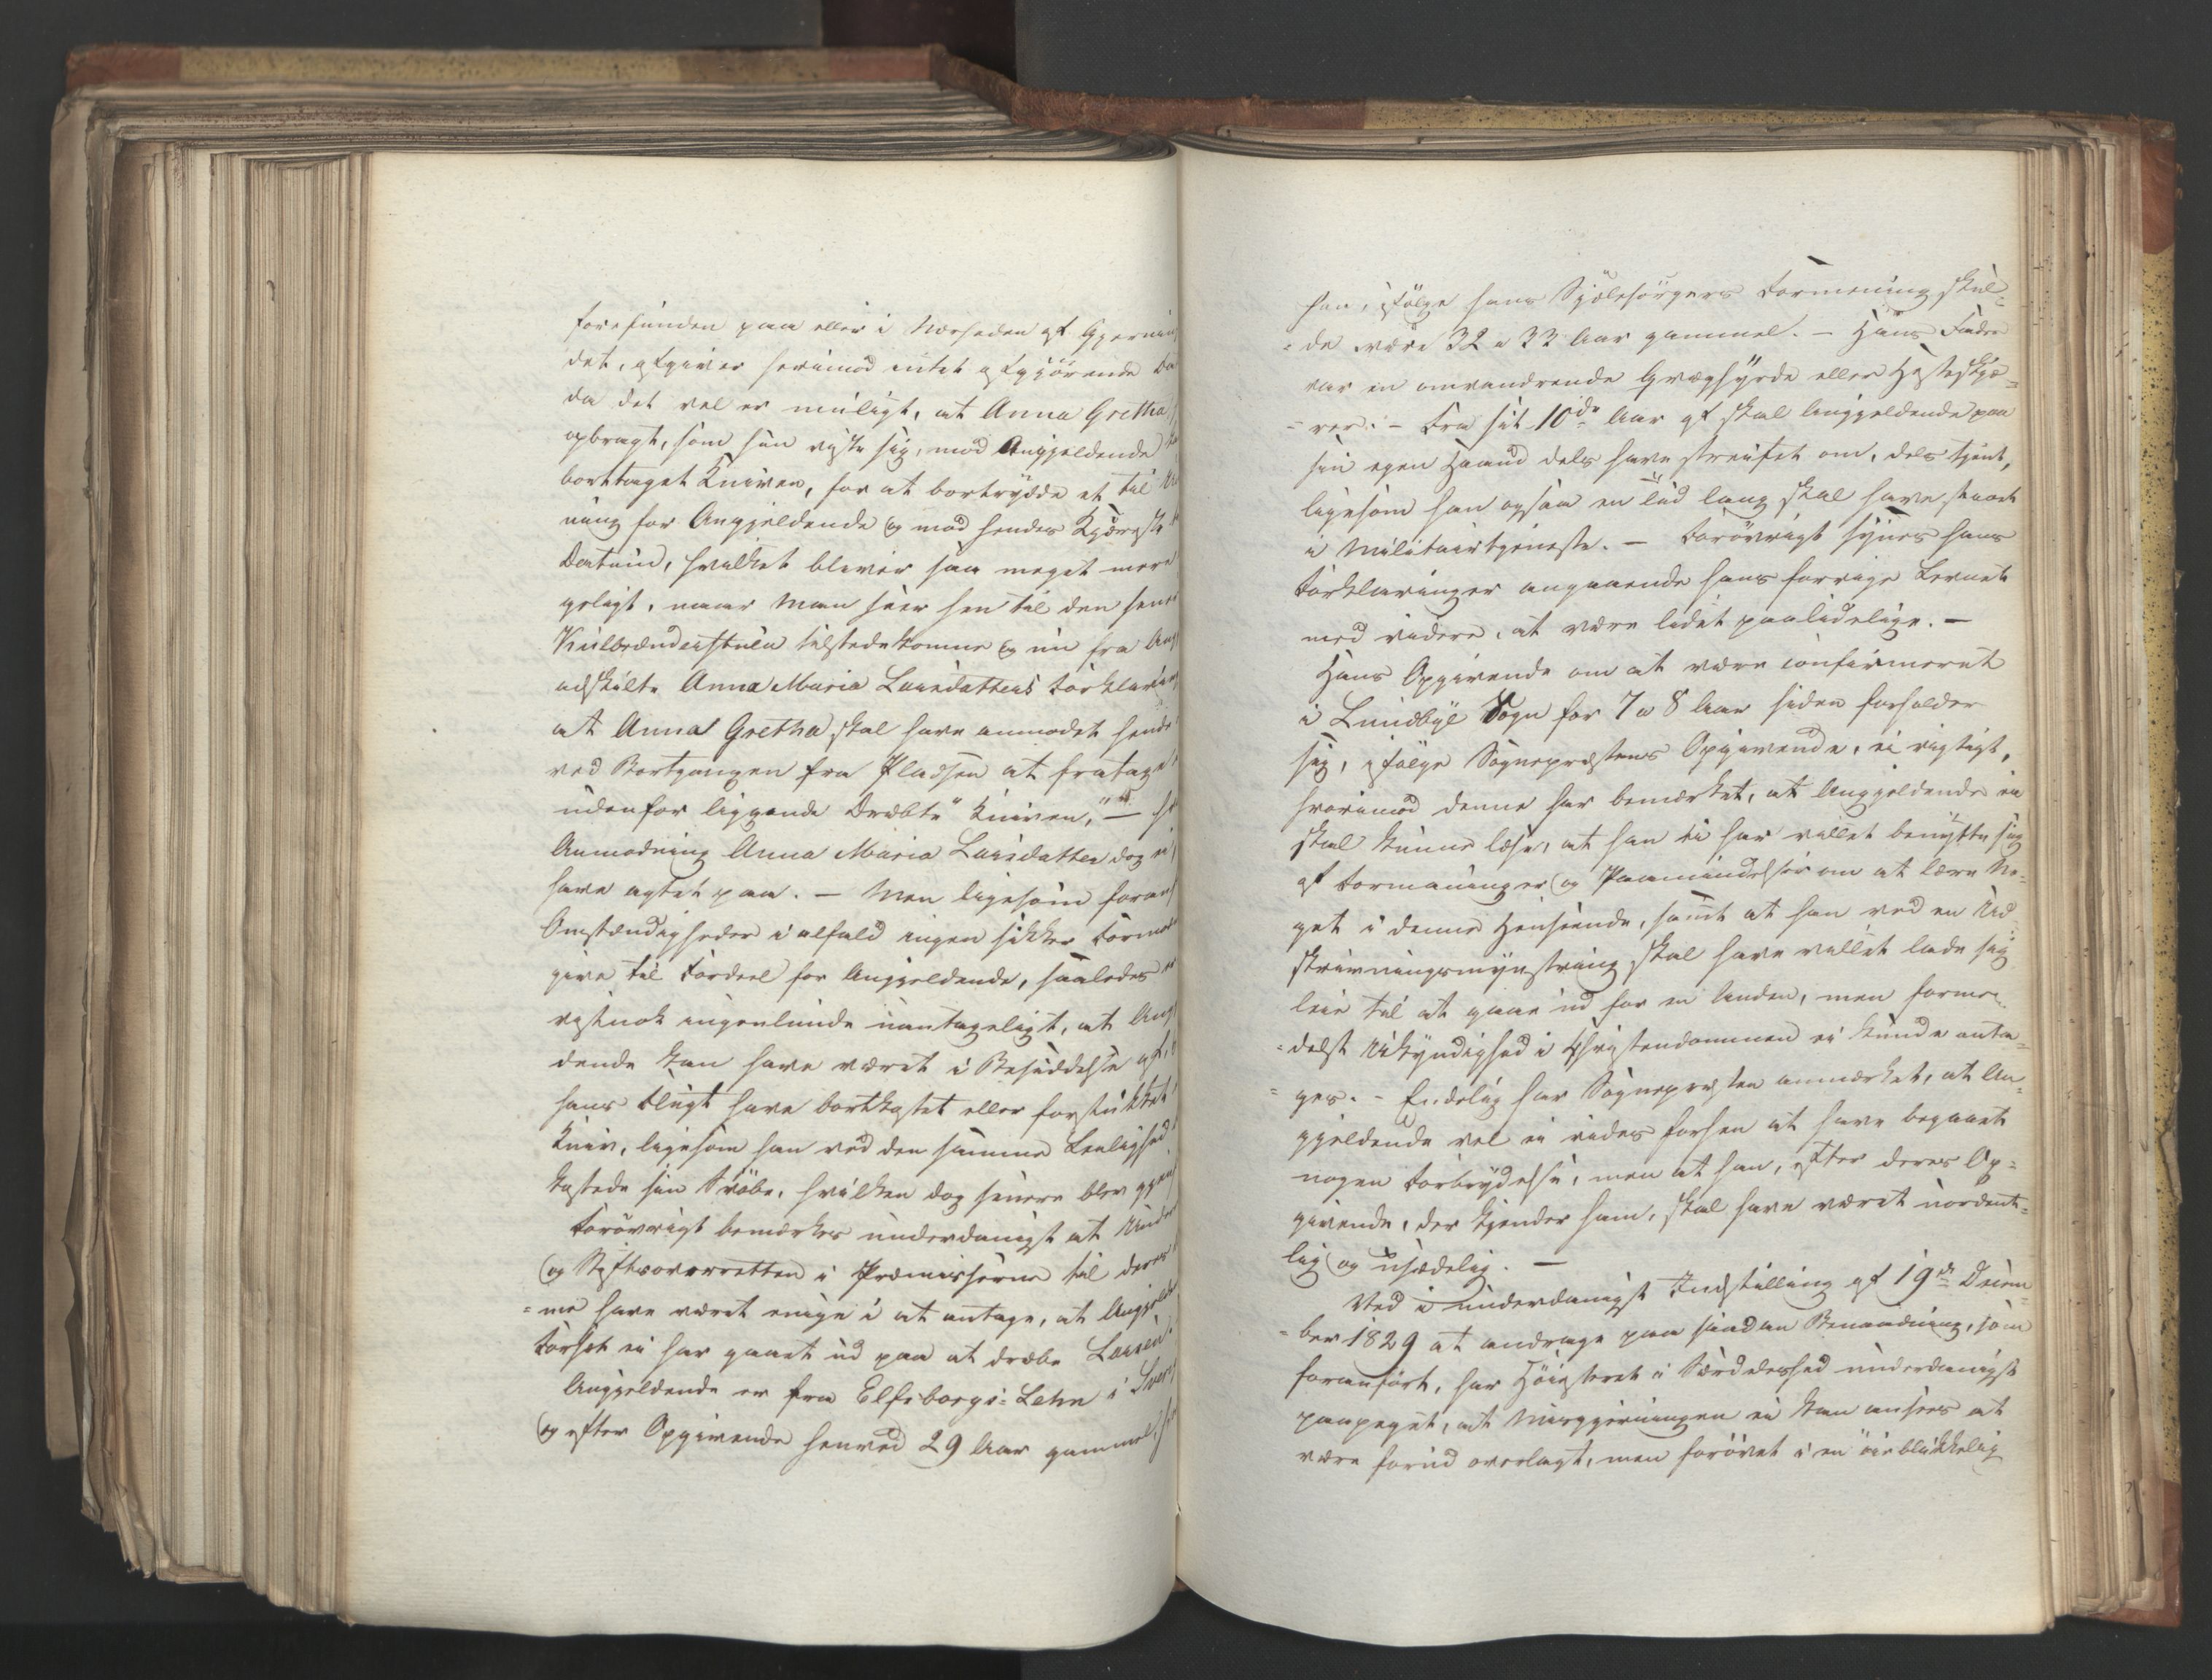 forefunden paa eller i Nærheden af Gjernin
det, afgiver herimod intet afgjørende
da det vel er muligt, at Anna Gretha
opbragt, som hun viste sig, mod Angjeldende
borttaget Kniven, for at bortrydde et til
ning for Angjeldende og mod hendes Kjæreste
Datum, hvilket bliver saa meget mere
geligt, naar Man seer hen til den senere
tilstedekomne og nu fra
adskilte Anna Maria Larsdatters Forklaring
at Anna Gretha skal have anmodet hende
ved Bortgangen fra Pladsen at fratage
udenfor liggende Dræbte "Kniven," –
Anmodning Anna Maria Larsdatter dog ei
have agtet paa. – Men ligesom
Omstændigheder i alfald ingen sikker
give til Fordeel for Angjeldende, saaledes er
vistnok ingenlunde uantageligt, at Ang
dende kan have været i Besiddelse af,
hans Flugt have bortkastet eller forstukket
Kniv, ligesom han ved den samme Leilighed
kastede sin Trøie, hvilken dog senere blev
Forøvrigt bemærkes underdanigst at Under
og Stiftsoverretten i Præmisserne til deres
=me have været enige i at antage, at Angjelde
Forsæt ei har gaaet ud paa at dræbe Larsen.
Angjeldende er fra Elfsborgs=Lehn i Sver
og efter Opgivende henved 29 Aar gammel,
han, ifølge hans Sjælesørgers Formening skul=
=de være 32 a 33 Aar gammel. – Hans Fader
var en omvandrende Græshyrde eller Hesteskjæ=
=rer. – Fra sit 10de Aar af skal Angjeldende paa
sin egen Haand dels have streifet om, dels tjent,
ligesom han ogsaa en Tid lang skal have staaet
i Militairtjeneste. – Forøvrigt synes hans
Forklaringer angaaende hans forrige Levnet
med videre, at være lidet paalidelige. –
Hans Opgivende om at være confirmeret
i Lundbye Sogn for 7 a 8 Aar siden forholder
sig, ifølge Sognepræstens Opgivende, ei rigtigt,
hvorimod denne har bemærket, at Angjeldende ei
skal kunne læse, at han ei har villet benytte sig
af Formaninger og Paamindelser om at lære No=
get i denne Henseende, samt at han ved en Ud=
skrivningsmynstring skal have villet lade sig
leie til at gaae ud for en Anden, men forme=
=delst Ukyndighed i Christendommen ei kunde anta=
=ges. – Endelig har Sognepræsten anmærket, at An=
gjeldende vel ei vides forhen at have begaaet
nogen Forbrydelse, men at han, efter deres Op=
givende, der kjender ham, skal have været uordent=
lig og usædelig. –
Ved i underdanigst Indstilling af 19de Decem=
=ber 1829 at andrage paa saadan Benaadning, som
foranført, har Høiesteret i Særdeleshed underdanigst
paapeget, at Misgjerningen ei kan ansees at
være forud overlagt, men forøvet i en øieblikkelig